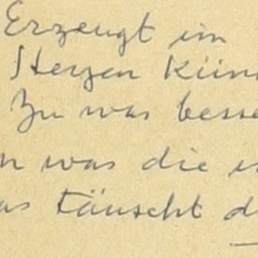 Erzeugt im
Herzen Kün
Zu was besse
n was die in
as täuscht d